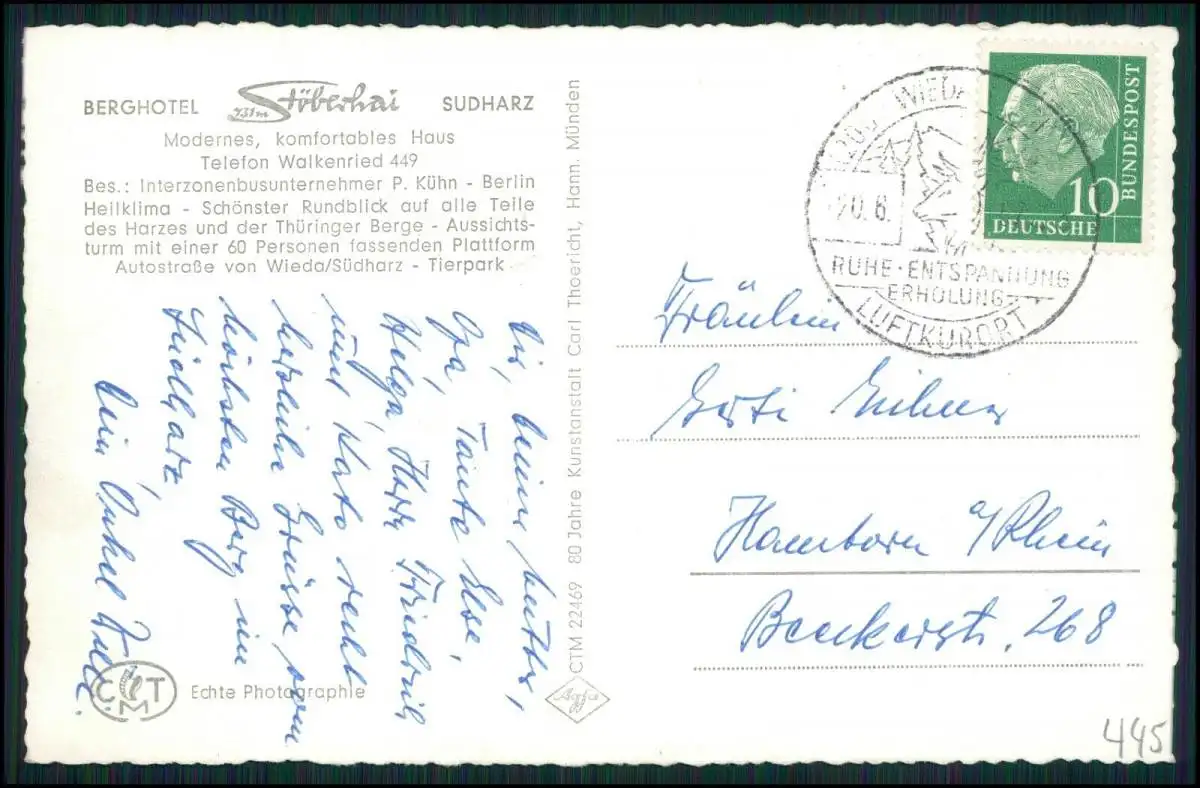 BERGHOTEL Stöberhai SUDHARZ
731m
Modernes, komfortables Haus
Telefon Walkenried 449
Bes.: Interzonenbusunternehmer P. Kühn - Berlin
Heilklima - Schönster Rundblick auf alle Teile
des Harzes und der Thüringer Berge - Aussichts-
turm mit einer 60 Personen fassenden Plattform
Autostraße von Wieda/Südharz - Tierpark
Dir, Deiner Mutter,
Opa, Tante Else,
Helga, Harry, Friedrich
und Kato recht
herzliche Grüsse vom
höchsten Berg im
Südharz,
Dein Onkel
Echte Photographie
CMT
CTM 22469 80 Jahre Kunstanstalt Carl Thoericht, Hann. Münden
Agfa
WIEDA
20.6.
RUHE · ENTSPANNUNG
ERHOLUNG
LUFTKURORT
DEUTSCHE
BUNDESPOST
10
Fräulein
Gerti
Hamborn a/Rhein
Beeckerstr. 268
445